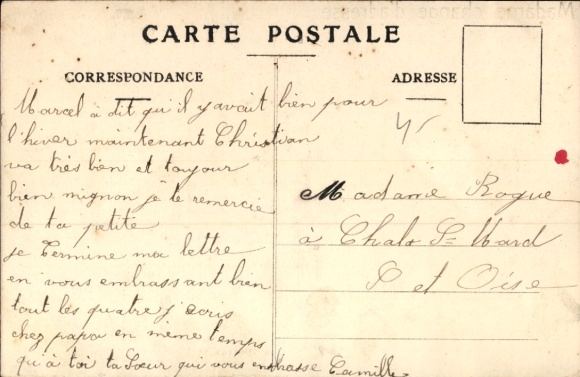 CARTE POSTALE
CORRESPONDANCE
ADRESSE
Marcel à dit qu'il y avait bien pour
l'hiver maintenant Christian
va très bien et toujour
bien mignon je le remercie
de ta petite
je termine ma lettre
en vous embrassant bien
tout les quatre j'
chez papa en même temps
qu'à toi ta Soeur qui vous embrasse Camille
45
Madame Rogue
à Chalo St Mard
S et Oise